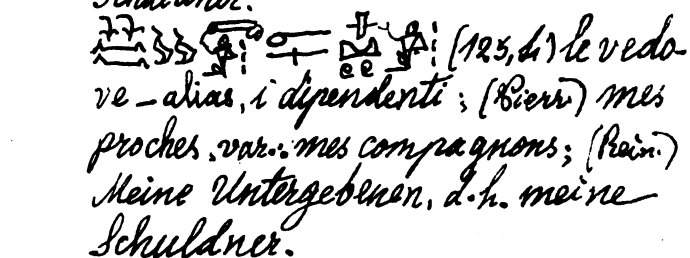 Schuldner.
(125,4) le vedo-
ve – alias, i dipendenti ; (Pierr.) mes
proches, var.: mes compagnons; (Rein.)
Meine Untergebenen, d.h. meine
Schuldner.